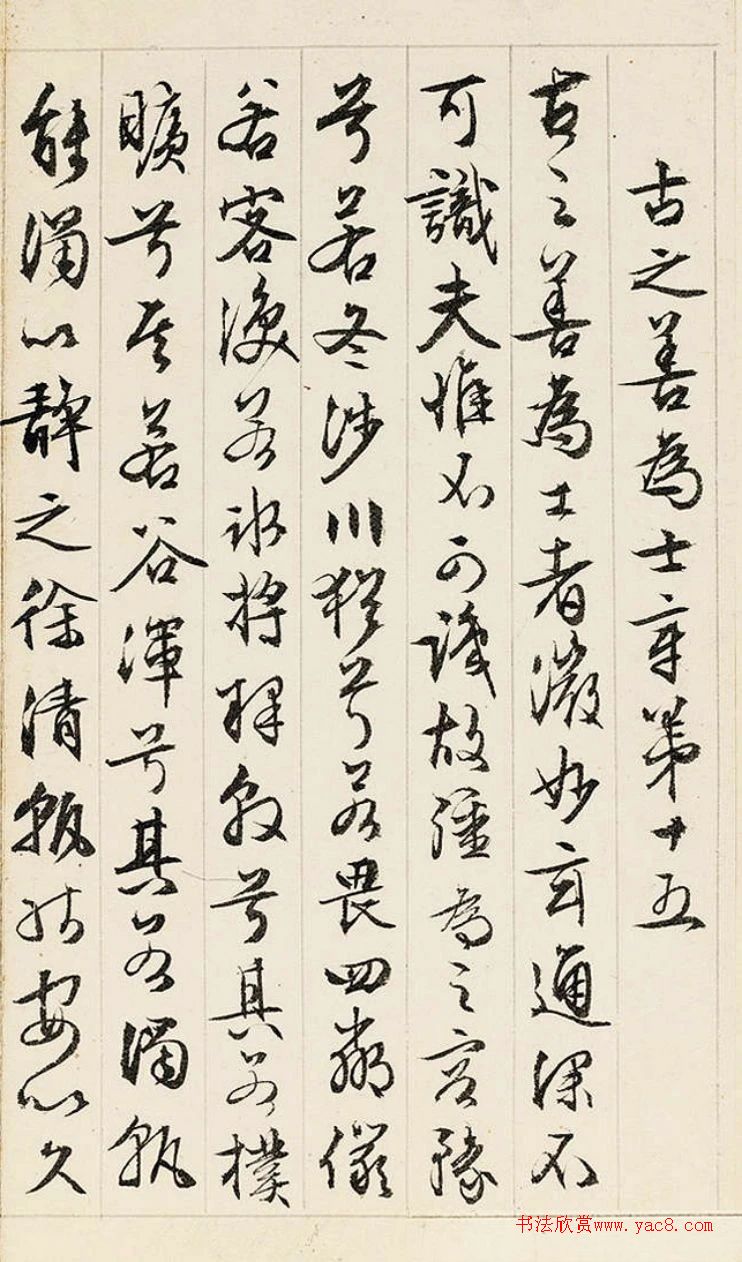 古之善為士章第十五
古之善為士者微妙玄通深不
可識夫惟不可識故強為之容豫
兮若冬涉川猶兮若畏四鄰儼
若客渙若冰將釋敦兮其若樸
曠兮其若谷渾兮其若濁孰
能濁以靜之徐清孰能安以久
书法欣赏www.yac8.com